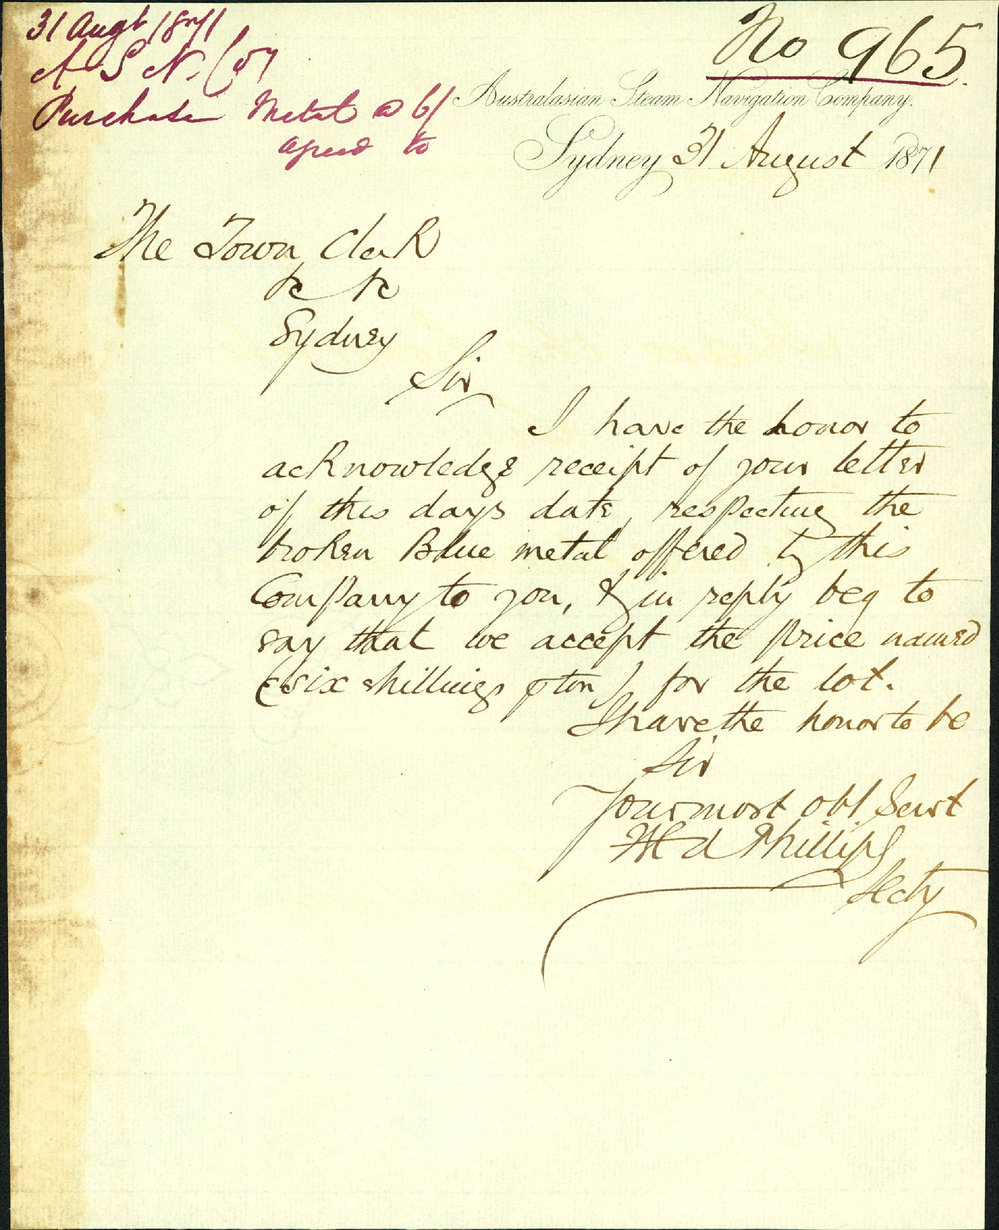 31 Augt 1871
A S N. Coy
Purchase Metal @ 6/
agreed to
No 965.
Australasian Steam Navigation Company.
Sydney 31 August 1871
The Town Clerk
&c &c
Sydney
Sir
I have the honor to
acknowledge receipt of your letter
of this days date, respecting the
broken Blue metal offered by this
Company to you, & in reply beg to
say that we accept the price named
(six shillings ton) for the lot.
I have the honor to be
Sir
Your most obt Servt
Phillips
Secty